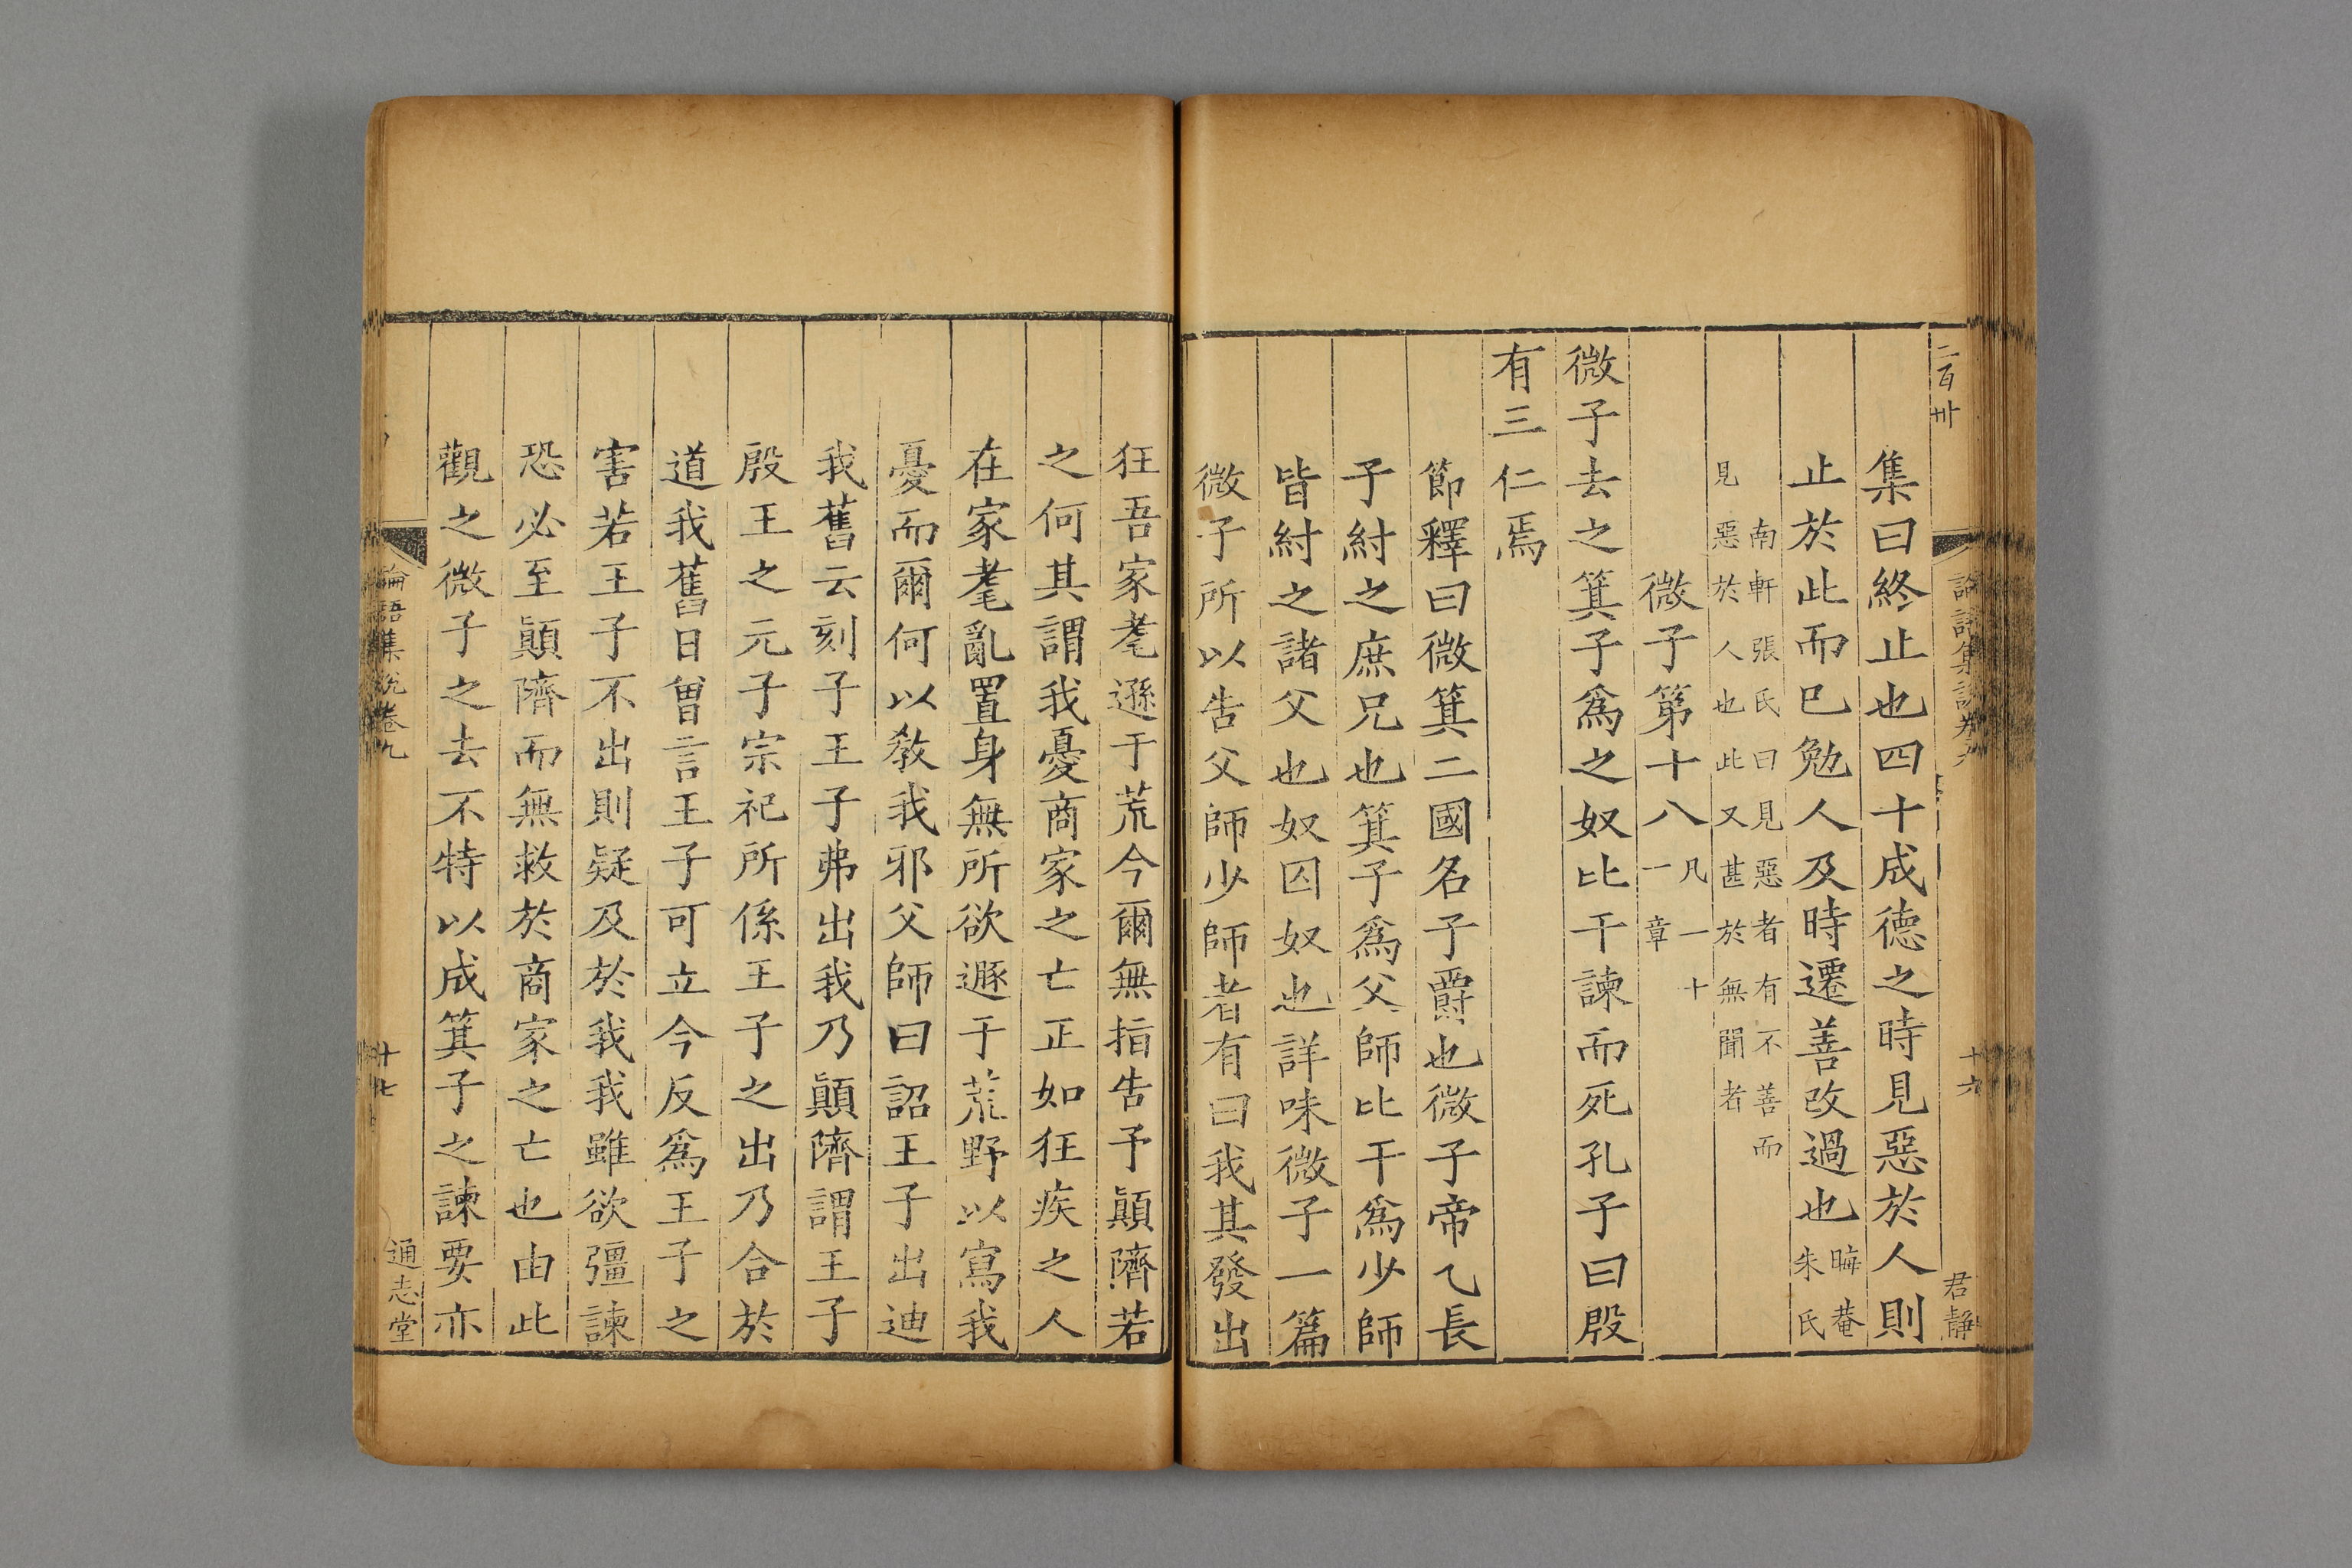 二百卅
論語集說卷九
十六
君靜
集曰終止也四十成德之時見惡於人則
止於此而已勉人及時遷善改過也晦菴朱氏
南軒張氏曰見惡者有不善而
見惡於人也此又甚於無聞者
微子第十八凡一十一章
微子去之箕子爲之奴比干諫而死孔子曰殷
有三仁焉
節釋曰微箕二國名子爵也微子帝乙長
子紂之庶兄也箕子爲父師比干爲少師
皆紂之諸父也奴囚奴也詳味微子一篇
微子所以告父師少師者有曰我其發出
狂吾家耄遜于荒今爾無指告予顛隮若
之何其謂我憂商家之亡正如狂疾之人
在家耄亂置身無所欲遯于荒野以寫我
憂而爾何以敎我邪父師曰詔王子出迪
我舊云刻子王子弗出我乃顛隮謂王子
殷王之元子宗祀所係王子之出乃合於
道我舊日曾言王子可立今反爲王子之
害若王子不出則疑及於我我雖欲彊諫
恐必至顛隮而無救於商家之亡也由此
觀之微子之去不特以成箕子之諫要亦
論語集說卷九
十七
通志堂